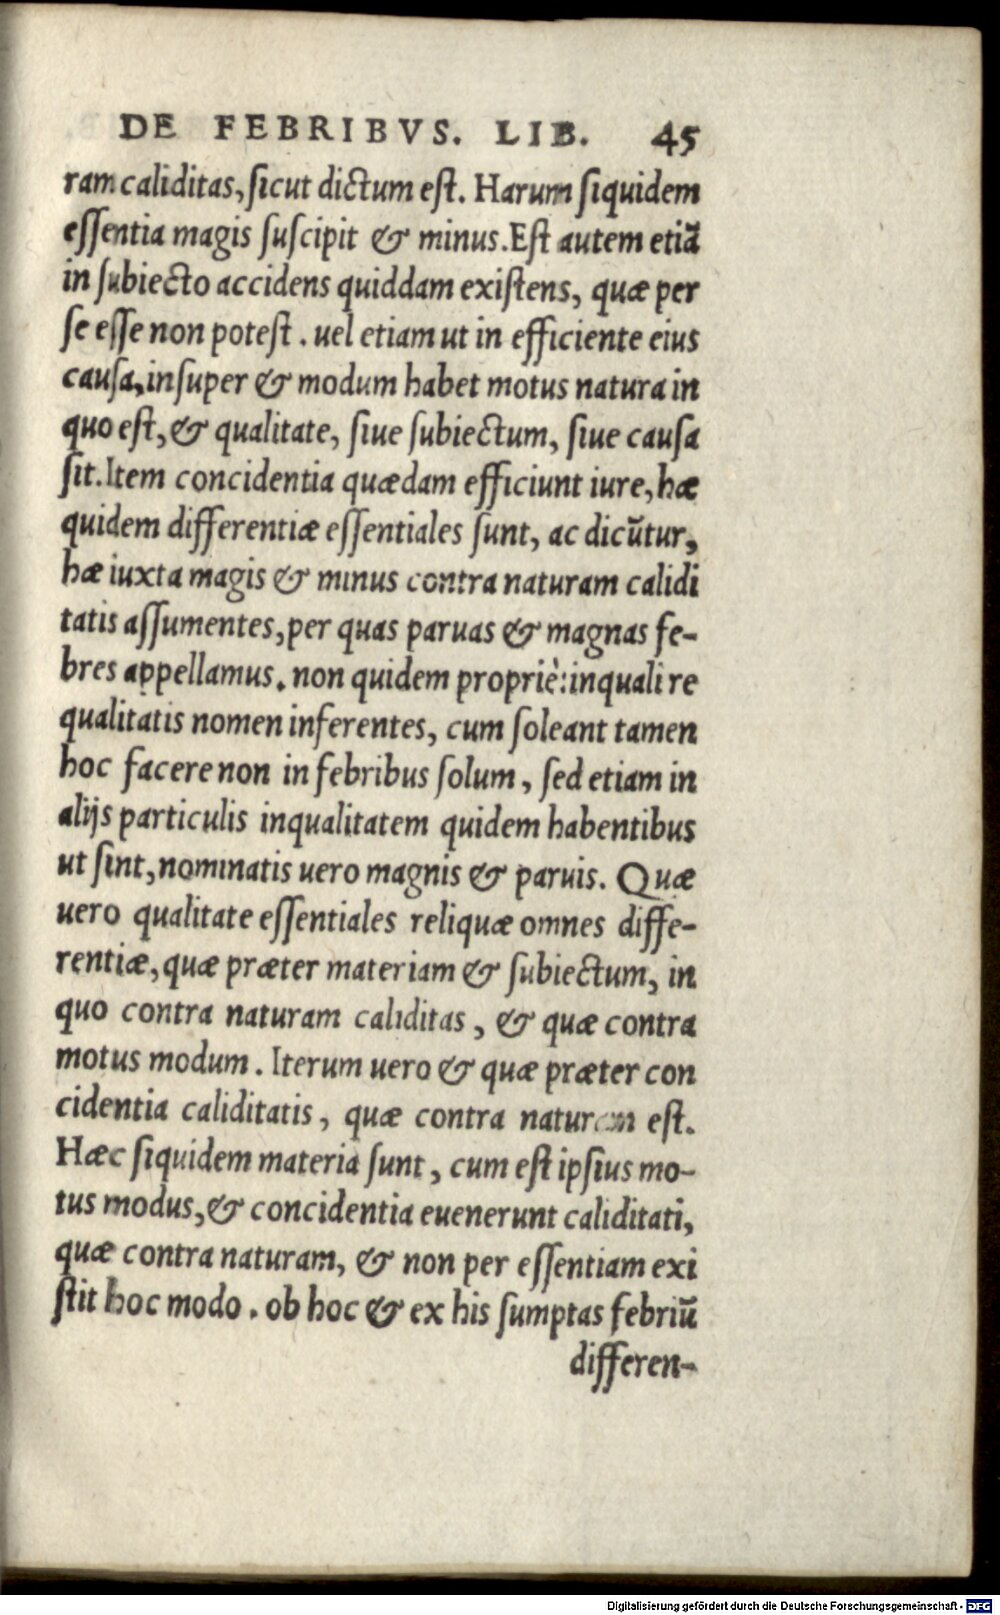 DE FEBRIBVS. LIB. 45
ram caliditas, ſicut dictum eſt. Harum ſiquidem
eſſentia magis ſuſcipit & minus. Eſt autem etiã
in ſubiecto accidens quiddam exiſtens, quæ per
ſe eſſe non poteſt. uel etiam ut in efficiente eius
cauſa, inſuper & modum habet motus natura in
quo eſt, & qualitate, ſiue ſubiectum, ſiue cauſa
ſit. Item concidentia quædam efficiunt iure, hæ
quidem differentiæ eſſentiales ſunt, ac dicũtur,
hæ iuxta magis & minus contra naturam calidi
tatis aſſumentes, per quas paruas & magnas fe-
bres appellamus. non quidem propriè: inquali re
qualitatis nomen inferentes, cum ſoleant tamen
hoc facere non in febribus ſolum, ſed etiam in
alijs particulis inqualitatem quidem habentibus
ut ſint, nominatis uero magnis & paruis. Quæ
uero qualitate eſſentiales reliquæ omnes diffe-
rentiæ, quæ præter materiam & ſubiectum, in
quo contra naturam caliditas, & quæ contra
motus modum. Iterum uero & quæ præter con
cidentia caliditatis, quæ contra naturam eſt.
Hæc ſiquidem materia ſunt, cum eſt ipſius mo-
tus modus, & concidentia euenerunt caliditati,
quæ contra naturam, & non per eſſentiam exi
ſtit hoc modo. ob hoc & ex his ſumptas febriũ
differen-
Digitalisierung gefördert durch die Deutsche Forschungsgemeinschaft - DFG